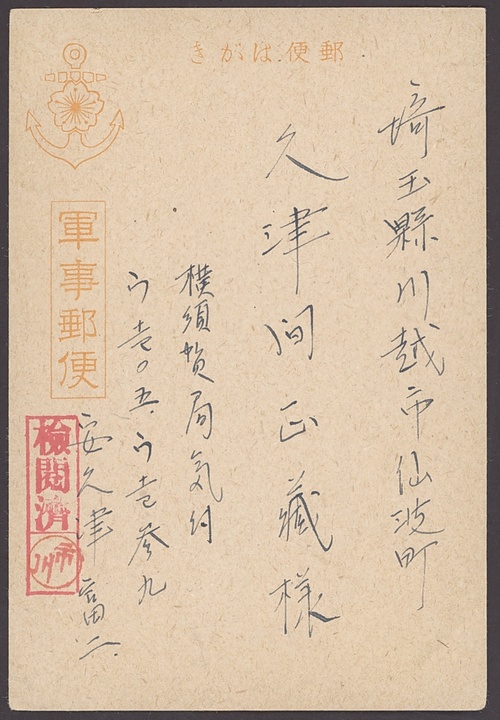 郵便はがき
埼玉縣川越市仙波町
久津間正藏様
横須賀局気付
ウ壱〇五、ウ壱参九
安久津富二
軍事郵便
検閲済
市川